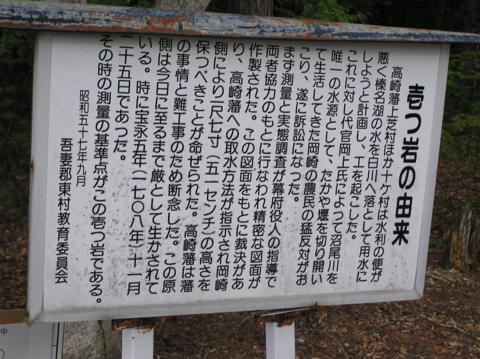 壱つ岩の由来
高崎藩上芝村ほか十ケ村は水利の便が
悪く榛名湖の水を白川へ落として用水に
しようと計画し、工を起こした。
これに対し代官岡上氏によって沼尾川を
唯一の水源として、たかや堰を切り開い
て生活してきた岡崎の農民の猛反対がお
こり、遂に訴訟になった。
まず測量と実態調査が幕府役人の指導で
両者協力のもとに行なわれ精密な図面が
作製された。この図面をもとに裁決があ
り、高崎藩への取水方法が指示され岡崎
側により一尺七寸(五一センチ)の高さを
保つべきことが命ぜられた。高崎藩は藩
の事情と難工事のため断念した。この原
側は今日に至るまで厳として生かされて
いる。時に宝永五年(一七〇八年)十一月
二十五日であった。
その時の測量の基準点がこの壱つ岩である。
昭和五十七年九月
吾妻郡東村教育委員会